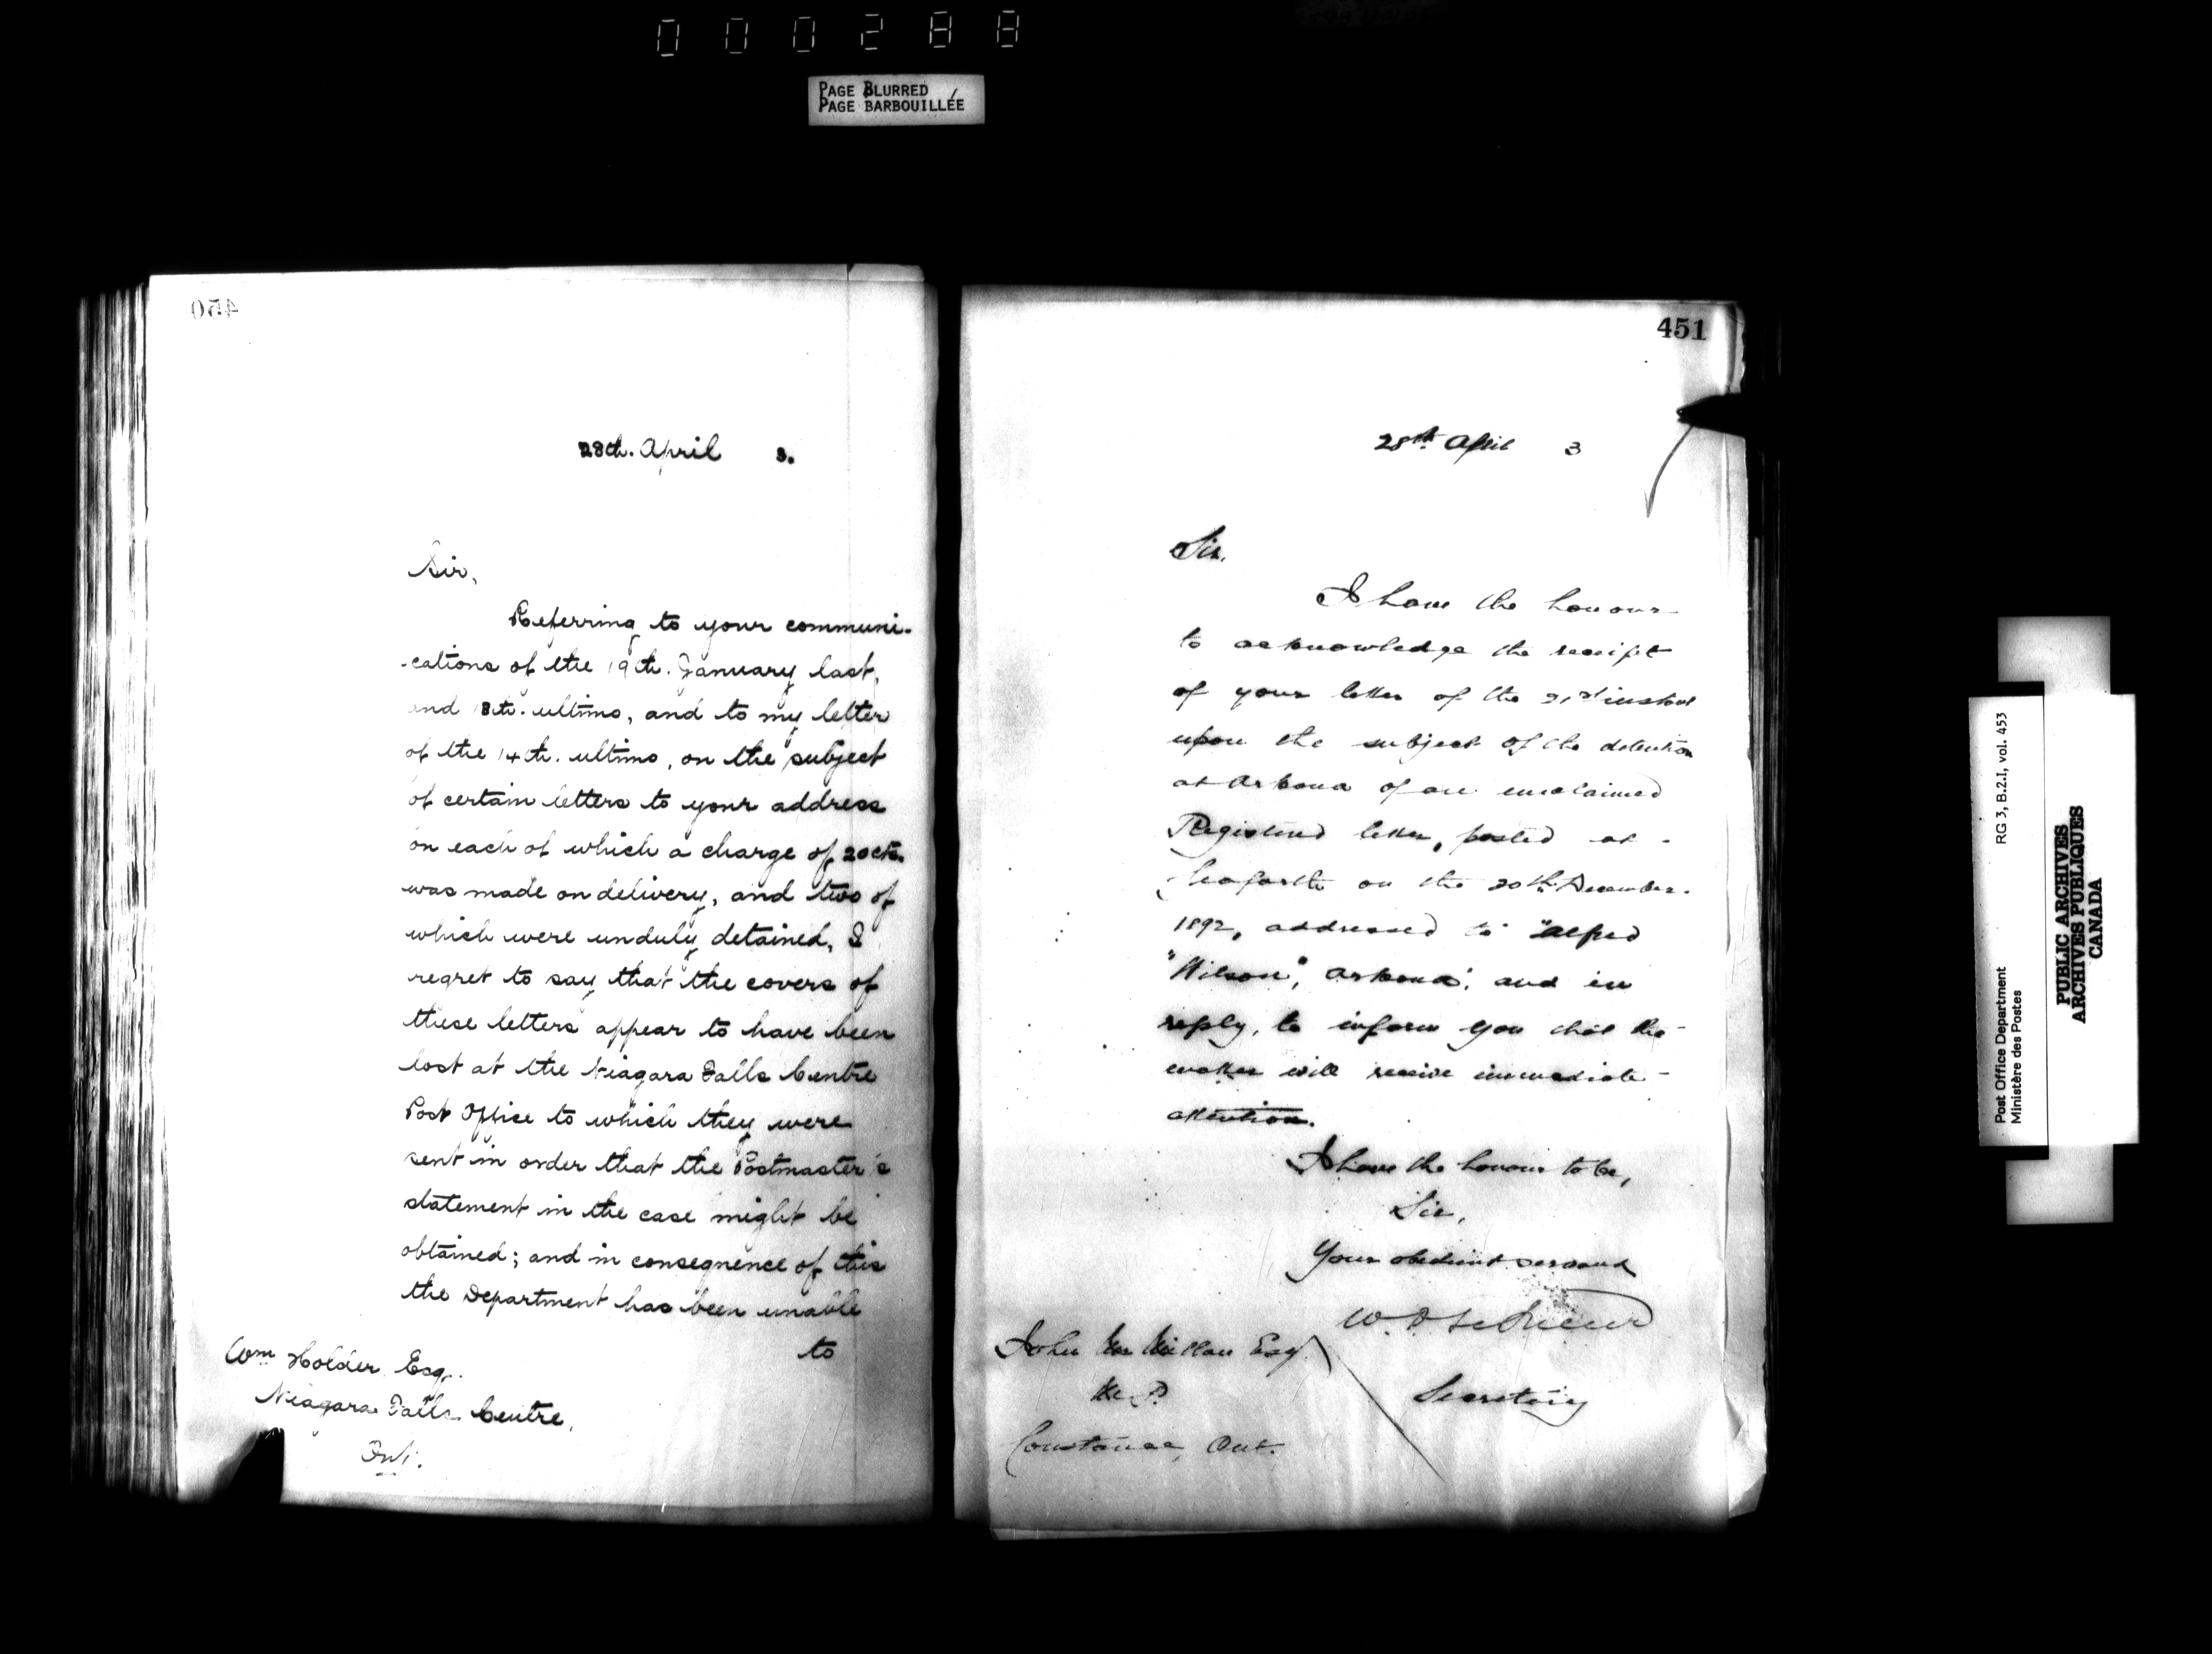 000288
PAGE BLURRED
PAGE BARBOUILLÉE
450
28th. April 3.
Sir,
Referring to your communi-
-cations of the 19th. January last,
and 8th. ultimo, and to my letter
of the 14th. ultimo, on the subject
of certain letters to your address
on each of which a charge of 20cts.
was made on delivery, and two of
which were unduly detained, I
regret to say that the covers of
these letters appear to have been
lost at the Niagara Falls Centre
Post Office to which they were
sent in order that the Postmaster's
statement in the case might be
obtained; and in consequence of this
the Department has been unable
to
Wm Holder Esq.
Niagara Falls Centre,
Ont.
451
28th April 3
Sir,
I have the honour
to acknowledge the receipt
of your letter of the 21st instant
upon the subject of the detention
at Arkona of an unclaimed
Registered letter, posted at -
Seaforth on the 20th December.
1892, addressed to "Alfred
"Wilson", Arkona; and in
reply, to inform you that the -
matter will receive immediate -
attention.
I have the honour to be,
Sir,
Your obedient servant
Secretary
John McMillan Esq
M.P.
Constance, Ont.
Post Office Department
Ministère des Postes
RG 3, B.2.I, vol. 453
PUBLIC ARCHIVES
ARCHIVES PUBLIQUES
CANADA